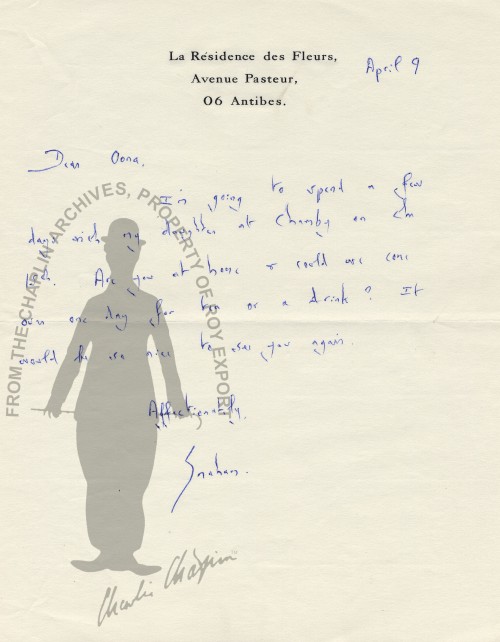 La Résidence des Fleurs,
Avenue Pasteur,
06 Antibes.
April 9
Dear Oona,
I'm going to spend a few
days with my daughter at Chamby on the
Are you at home & could we come
over one day for tea or a drink? It
would be so nice to see you again.
Affectionately,
Graham.
FROM THE CHAPLIN ARCHIVES, PROPERTY OF ROY EXPORT
Charlie Chaplin